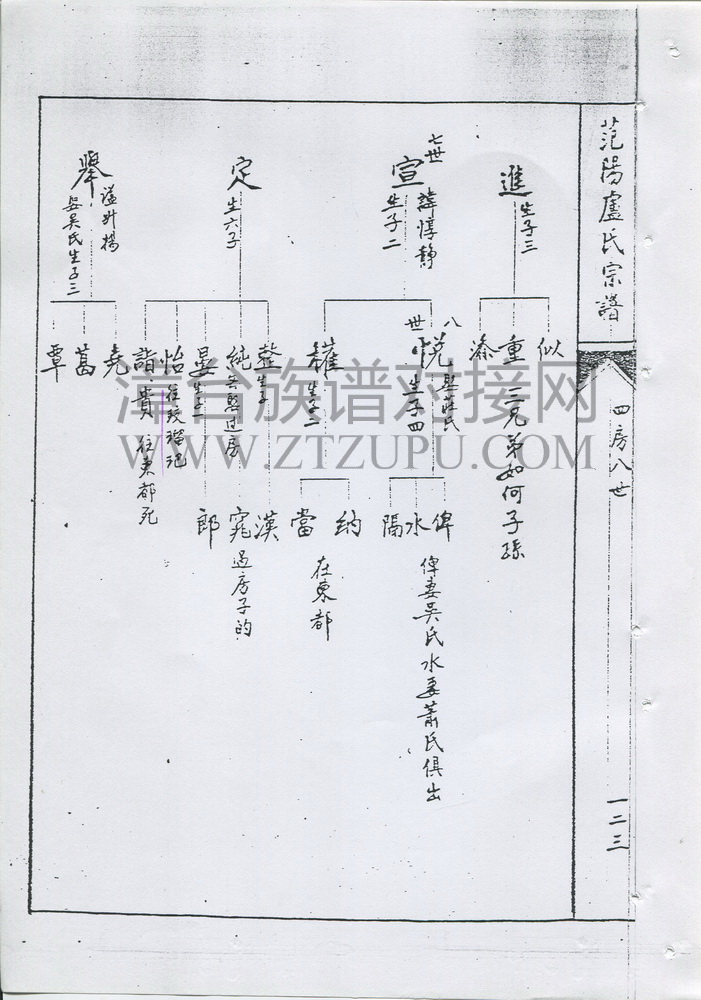 范陽盧氏宗譜
四房八世
一二三
進 生子三
似
重
三兄弟如何子孫
七世
宣 諱惇靜
生子二
八世
悦 娶莊氏
生子四
俾
水
隔
俾妻吳氏水妻蕭氏俱出
生子二
納
當
在東都
定 生六子
生子
漢
純 無娶過房
窕 過房子的
晏 生子一
郎
怡 往玟瑠坭
諧 貴 往東都死
舉 諡升揚
娶吳氏生子三
堯
葛
覃
津台族谱对接网
WWW.ZTZUPU.COM